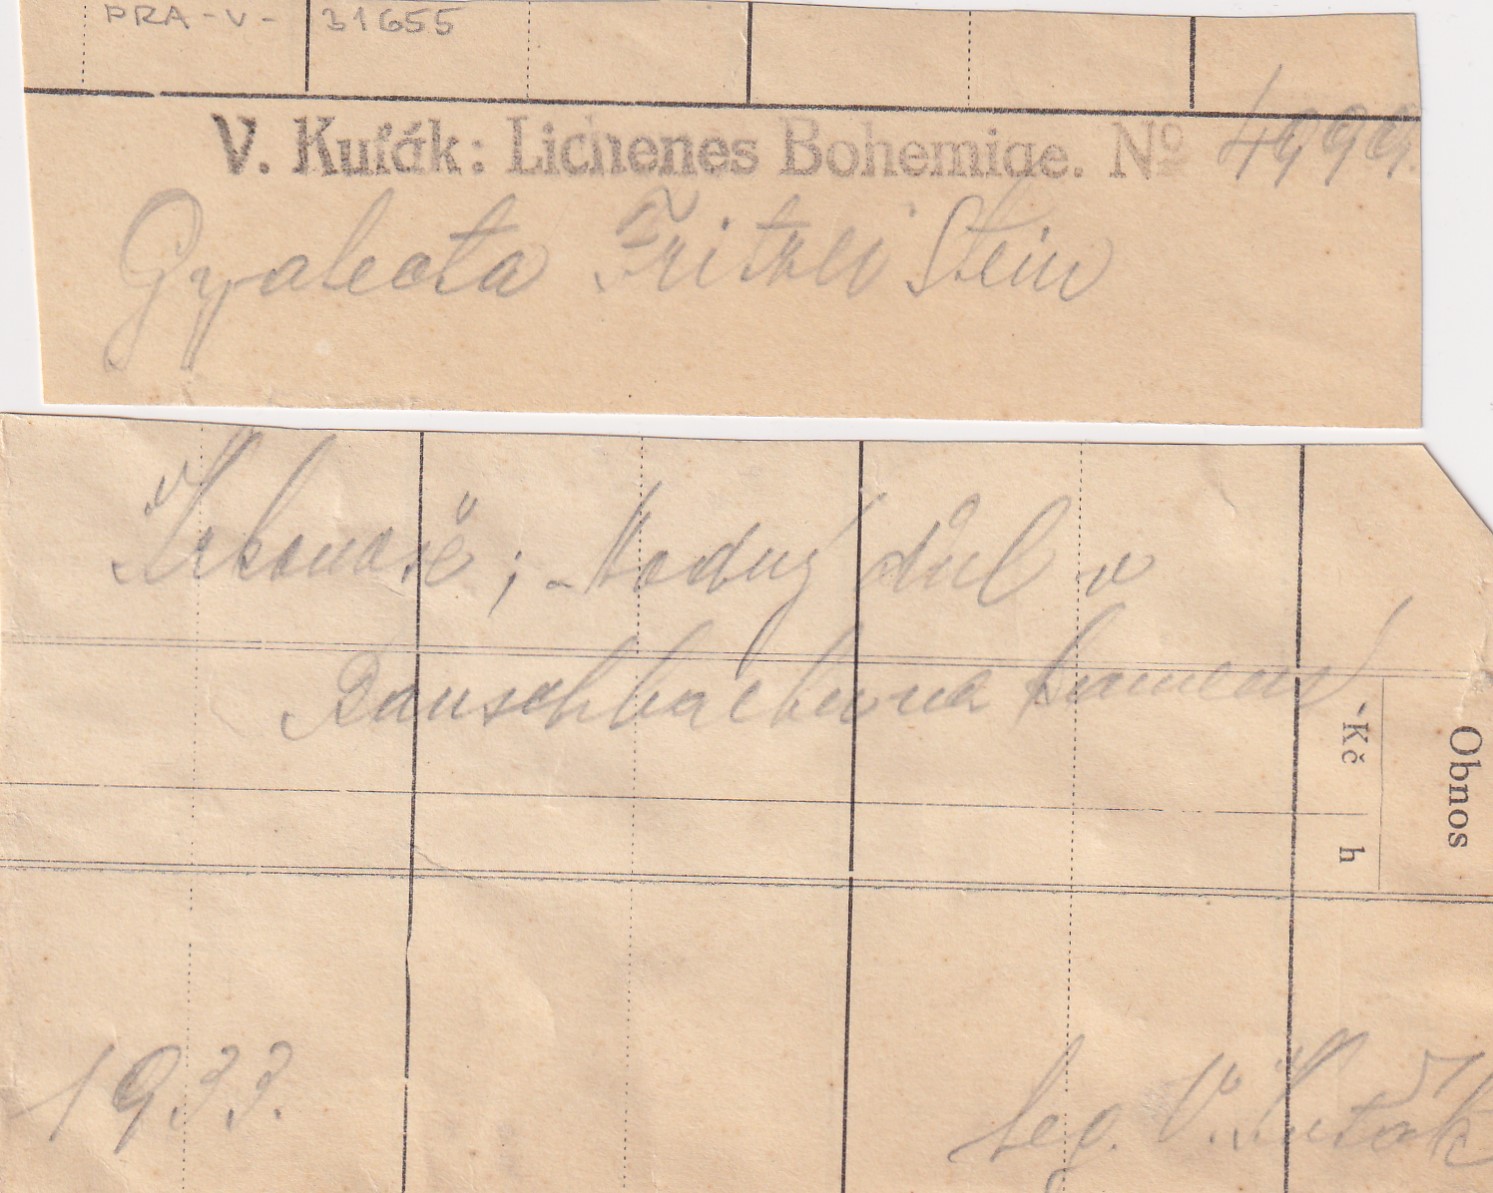 PRA - V - 31655
V. Kuťák: Lichenes Bohemiae. Nº 4999.
Gyalecta Fritzei Stein
Krkonoše; Modrý důl v
na kamení
Kč h
Obnos
1933.
leg. V. Kuťák